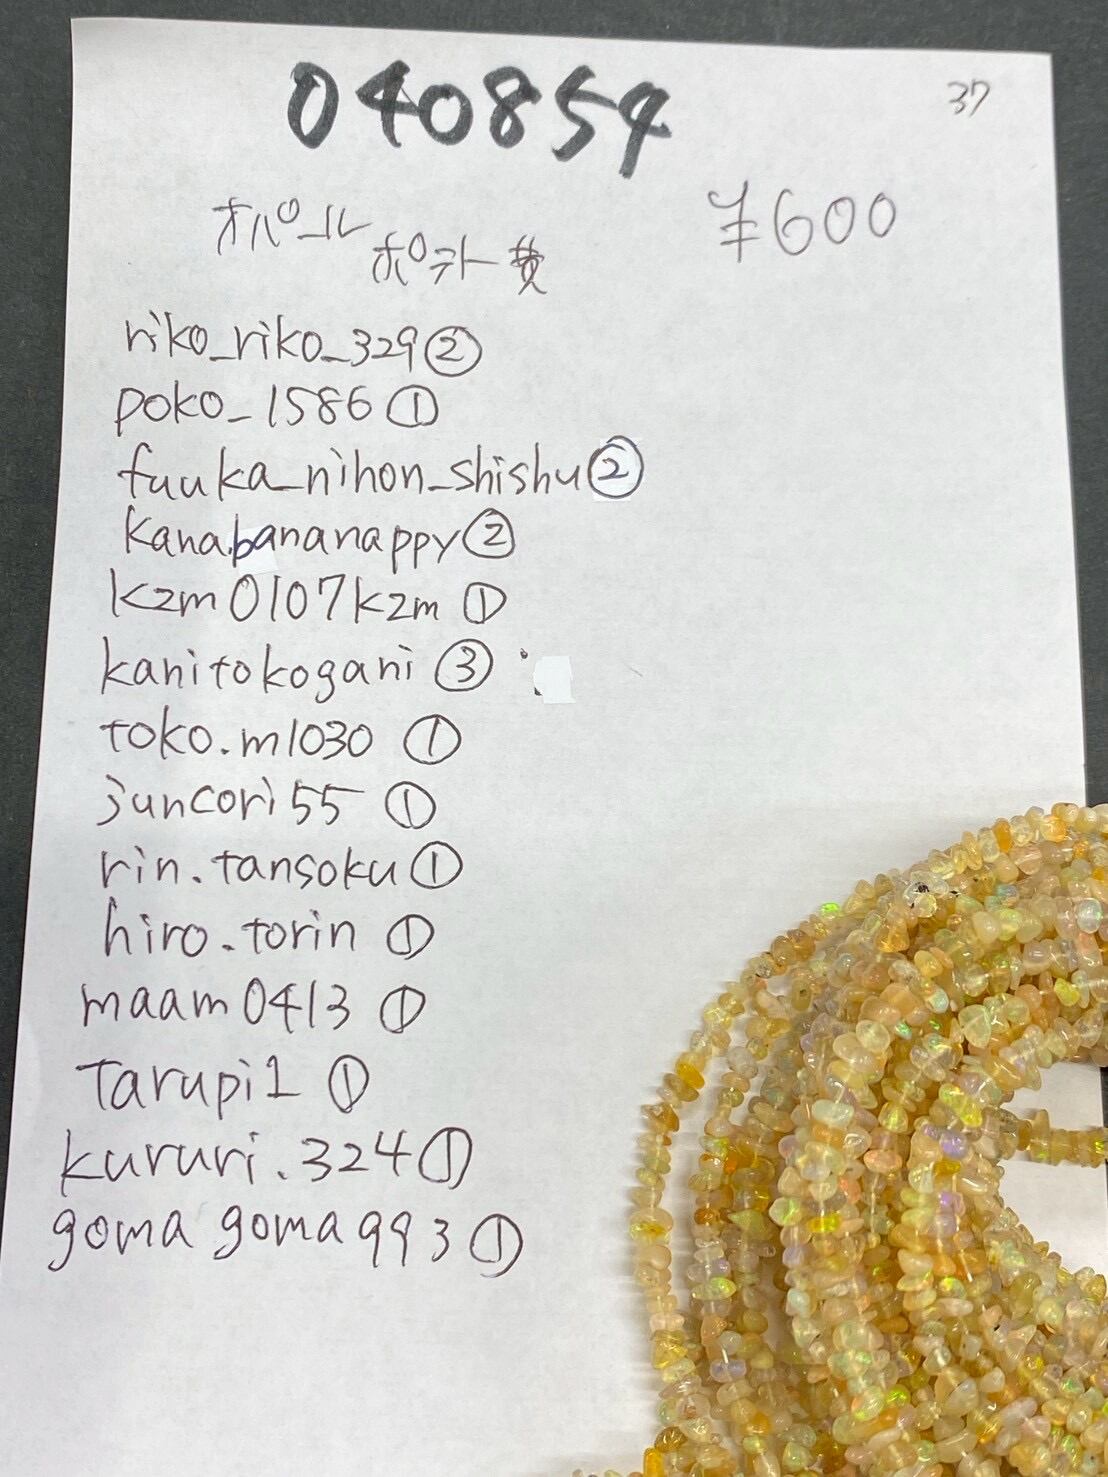 040854
37
オパール
¥600
ポテト貴
riko_riko_329②
poko_1586①
fuuka_nihon_shishu②
kana.bananappy②
kzm0107kzm①
kanitokogani③
toko.m1030①
juncori55①
rin.tansoku①
hiro.torin①
maam0413①
Tarupi1①
kururi.324①
goma goma993①